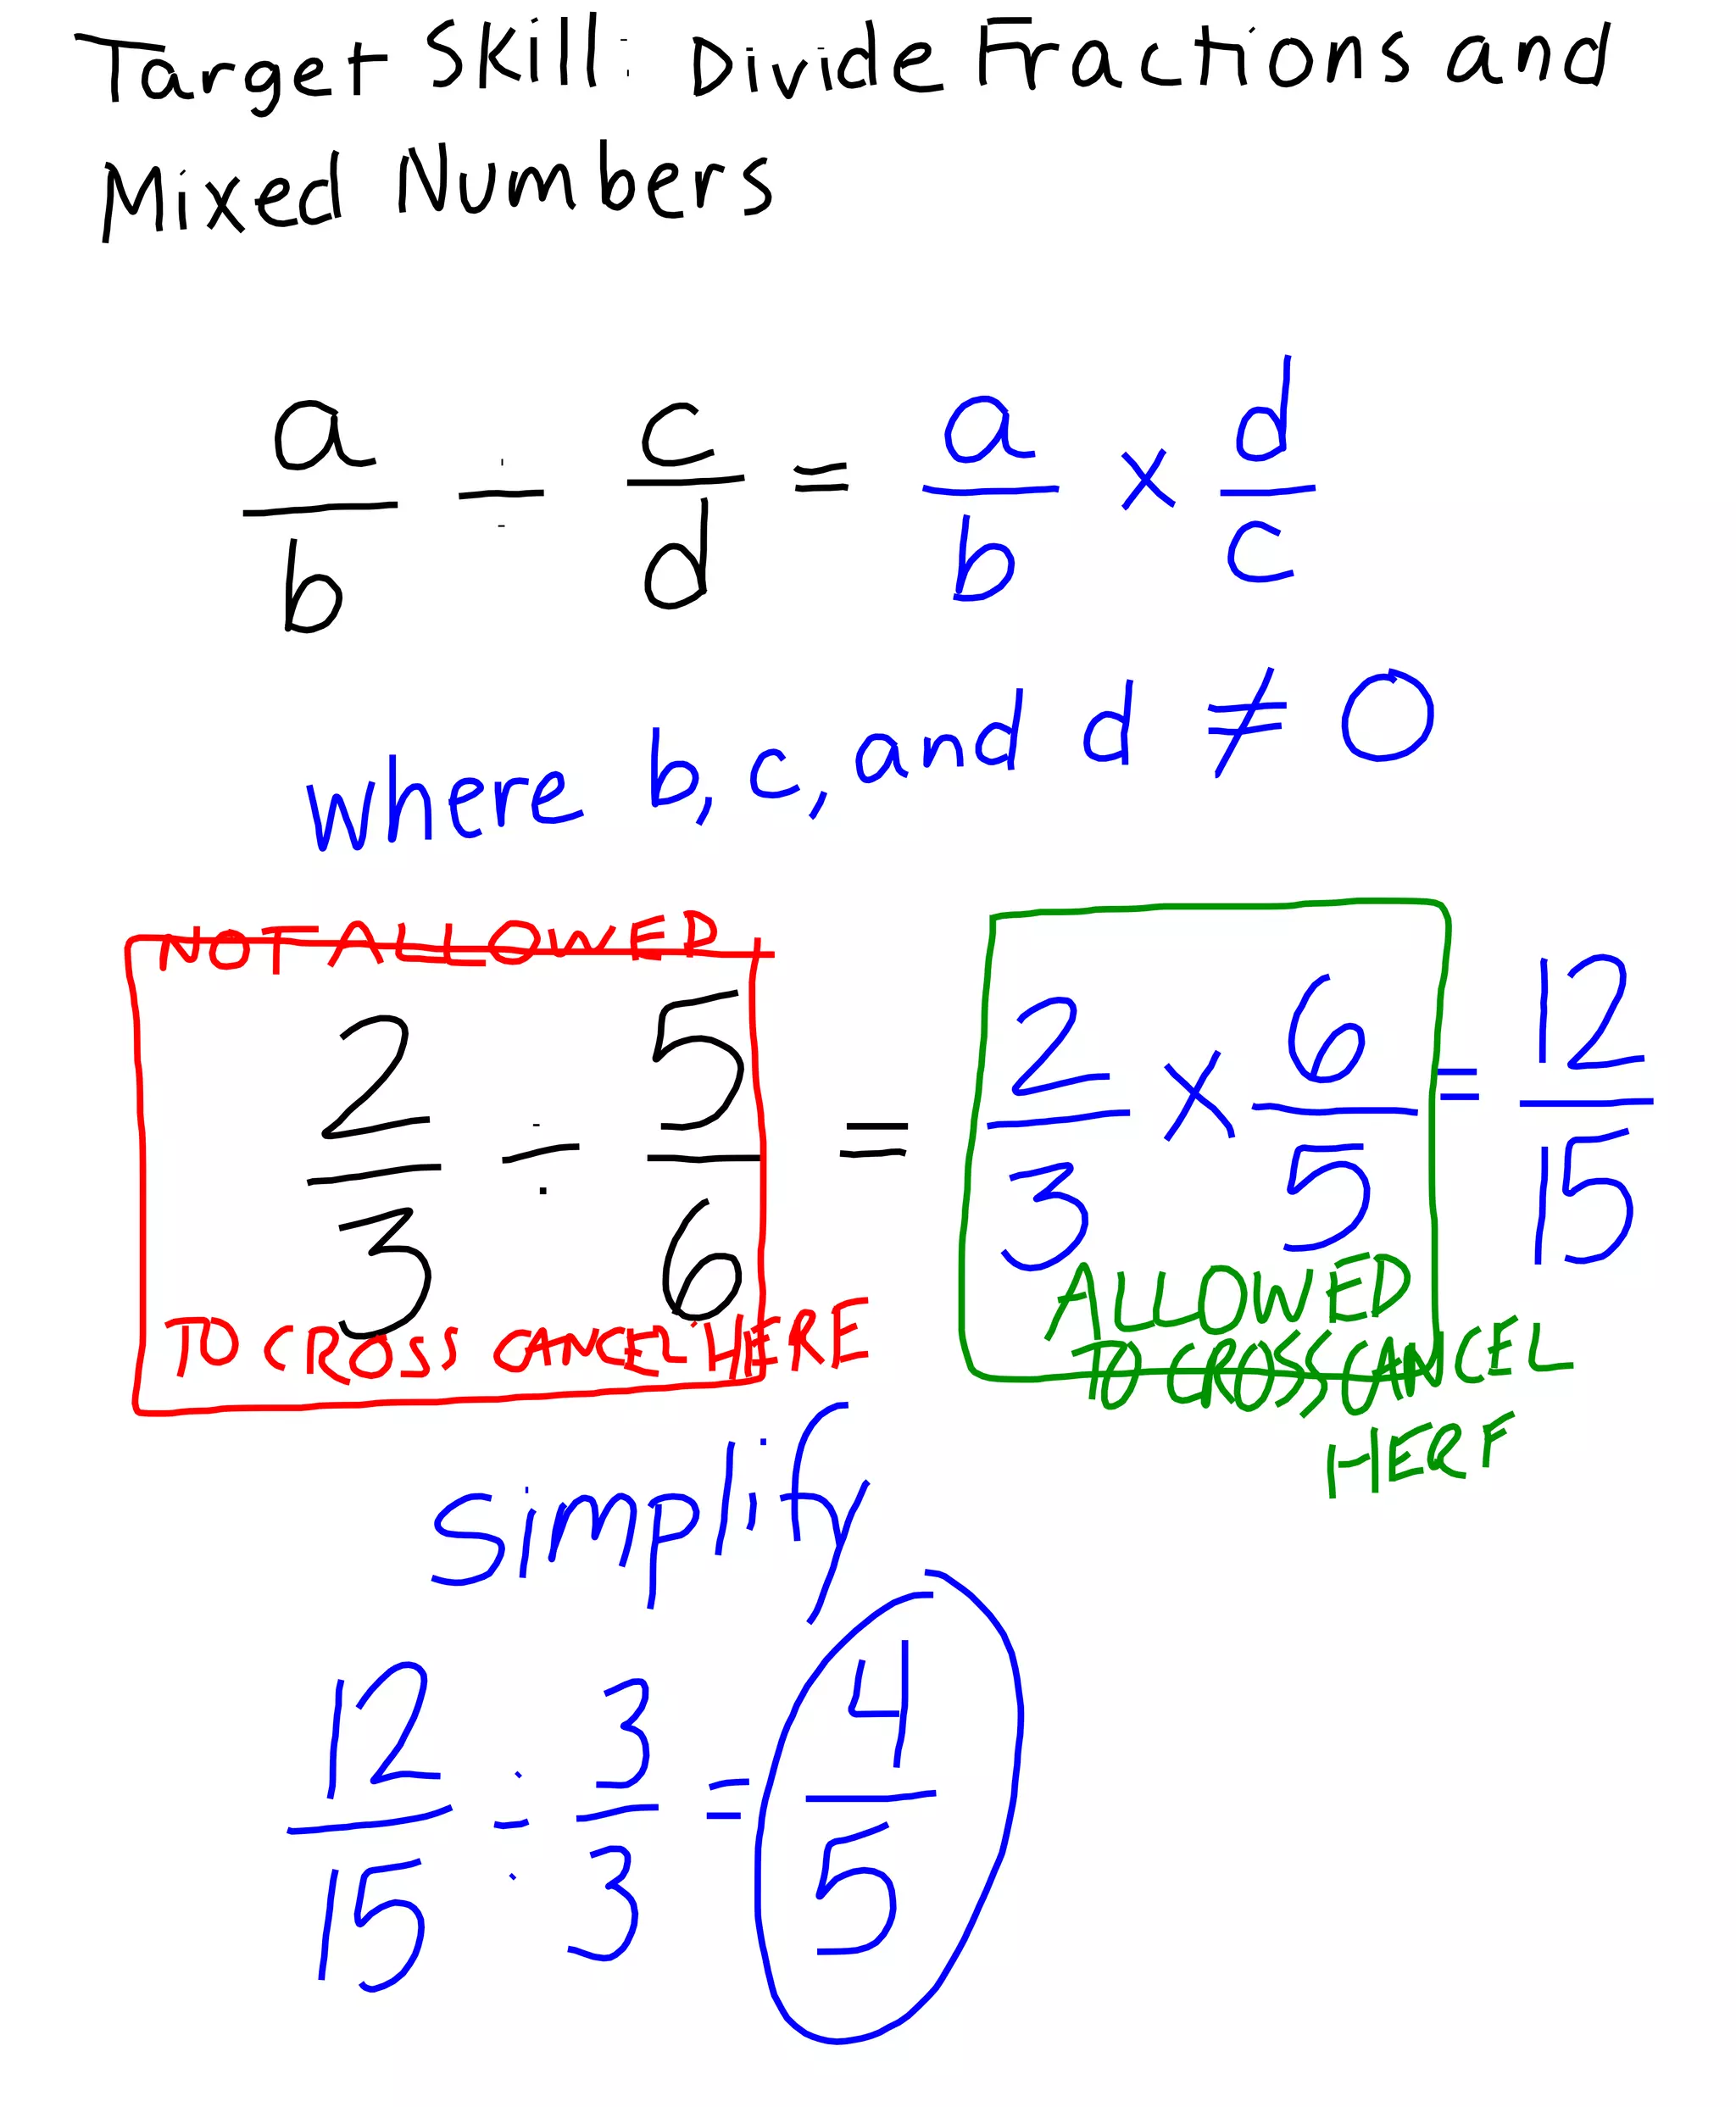 Target Skill: Divide Fractions and
Mixed Numbers
a/b ÷ c/d = a/b × d/c
where b, c, and d ≠ 0
NOT ALLOWED
2/3 ÷ 5/6 = 2/3 × 6/5 = 12/15
TO CROSS CANCEL HERE
ALLOWED
TO CROSS CANCEL
HERE
simplify
12/15 ÷ 3/3 = 4/5